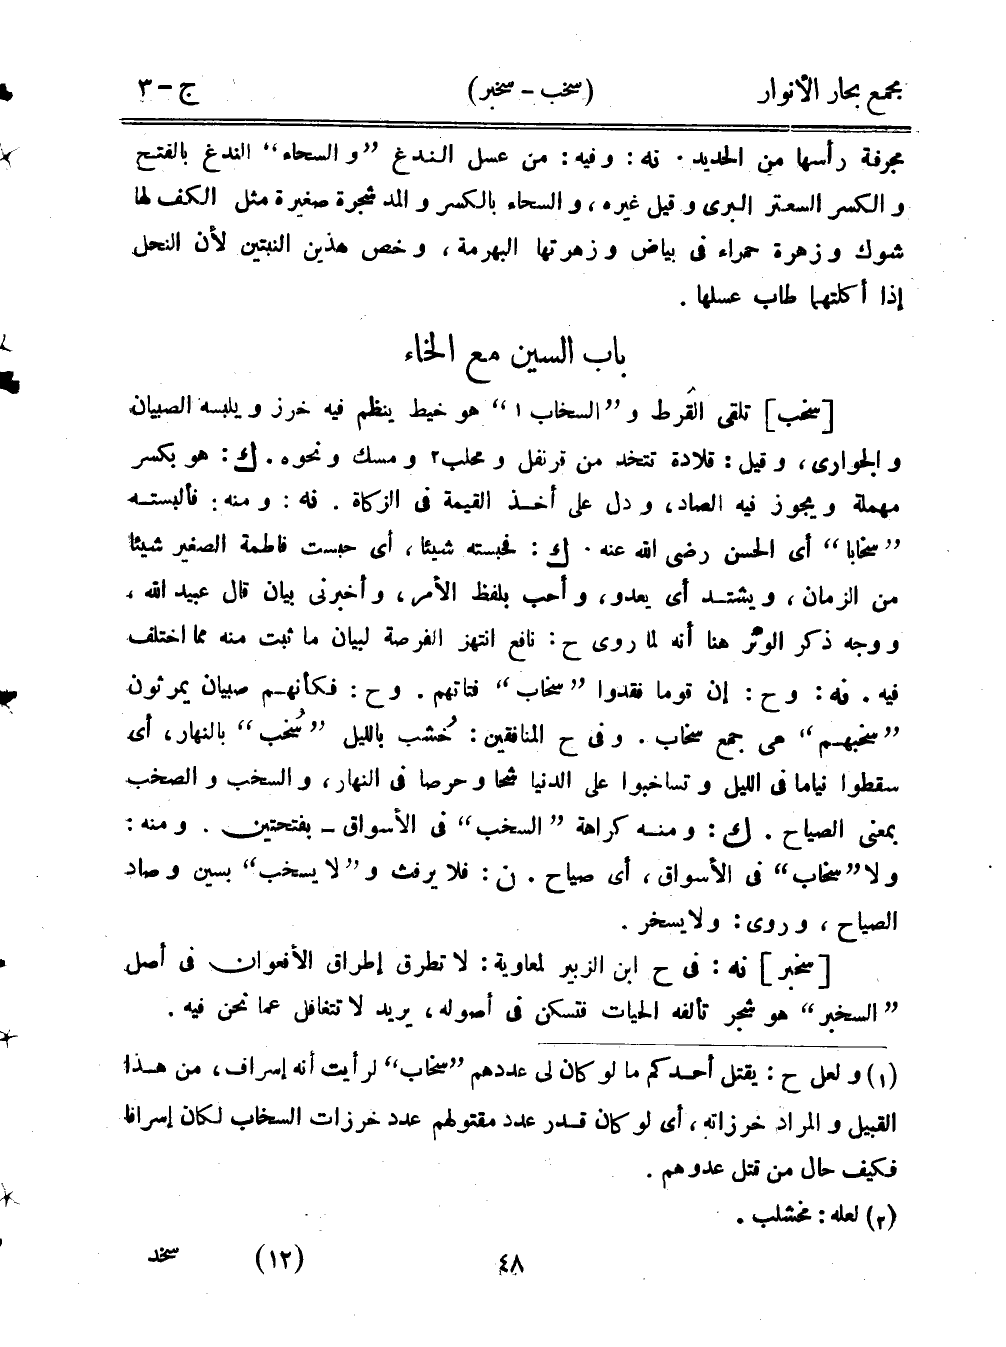 مجمع بحار الأنوار (سخب - سخبر) ج - ٣
مجرفة رأسها من الحديد . نه : وفيه : من عسل الندغ ”و السحاء“ الندغ بالفتح
و الكسر السعتر البرى و قيل غيره ، و السحاء بالكسر و المد شجرة صغيرة مثل الكف لها
شوك و زهرة حمراء فى بياض و زهرتها البهرمة ، و خص هذين النبتين لأن النحل
إذا أكلتهما طاب عسلها .
باب السين مع الخاء
[سخب] تلقى القُرط و ”السخاب ١“ هو خيط ينظم فيه خرز و يلبسه الصبيان
و الجوارى ، و قيل : قلادة تتخذ من قرنفل و محلب٢ و مسك و نحوه . ك : هو بكسر
مهملة و يجوز فيه الصاد ، و دل على أخذ القيمة فى الزكاة . نه : و منه : فألبسته
”سخابا“ أى الحسن رضى الله عنه . ك : فحبسته شيئا ، أى حبست فاطمة الصغير شيئا
من الزمان ، و يشتد أى يعدو ، و أحب بلفظ الأمر ، و أخبرنى بيان قال عبيد الله ،
و وجه ذكر الوتر هنا أنه لما روى ح : نافع انتهز الفرصة لبيان ما ثبت منه مما اختلف
فيه . نه : و ح : إن قوما فقدوا ”سخاب“ فتاتهم . و ح : فكأنهم صبيان يمرثون
”سخبهم“ هى جمع سخاب . و فى ح المنافقين : خُشب بالليل ”سُخب“ بالنهار ، أى
سقطوا نياما فى الليل و تساخبوا على الدنيا شحا و حرصا فى النهار ، و السخب و الصخب
بمعنى الصياح . ك : و منه كراهة ”السخب“ فى الأسواق - بفتحتين . و منه :
و لا ”سخاب“ فى الأسواق ، أى صياح . ن : فلا يرفث و ”لا يسخب“ بسين و صاد
الصياح ، و روى : و لا يسخر .
[سخبر] نه : فى ح ابن الزبير لمعاوية : لا تطرق إطراق الأفعوان فى أصل
”السخبر“ هو شجر تألفه الحيات فتسكن فى أصوله ، يريد لا تتغافل عما نحن فيه .
(١) و لعل ح : يقتل أحدكم ما لو كان لى عددهم ”سخاب“ لرأيت أنه إسراف ، من هذا
القبيل و المراد خرزاته ، أى لو كان قدر عدد مقتولهم عدد خرزات السخاب لكان إسرافا
فكيف حال من قتل عدوهم .
(٢) لعله : مخشلب .
٤٨ (١٢) سخد